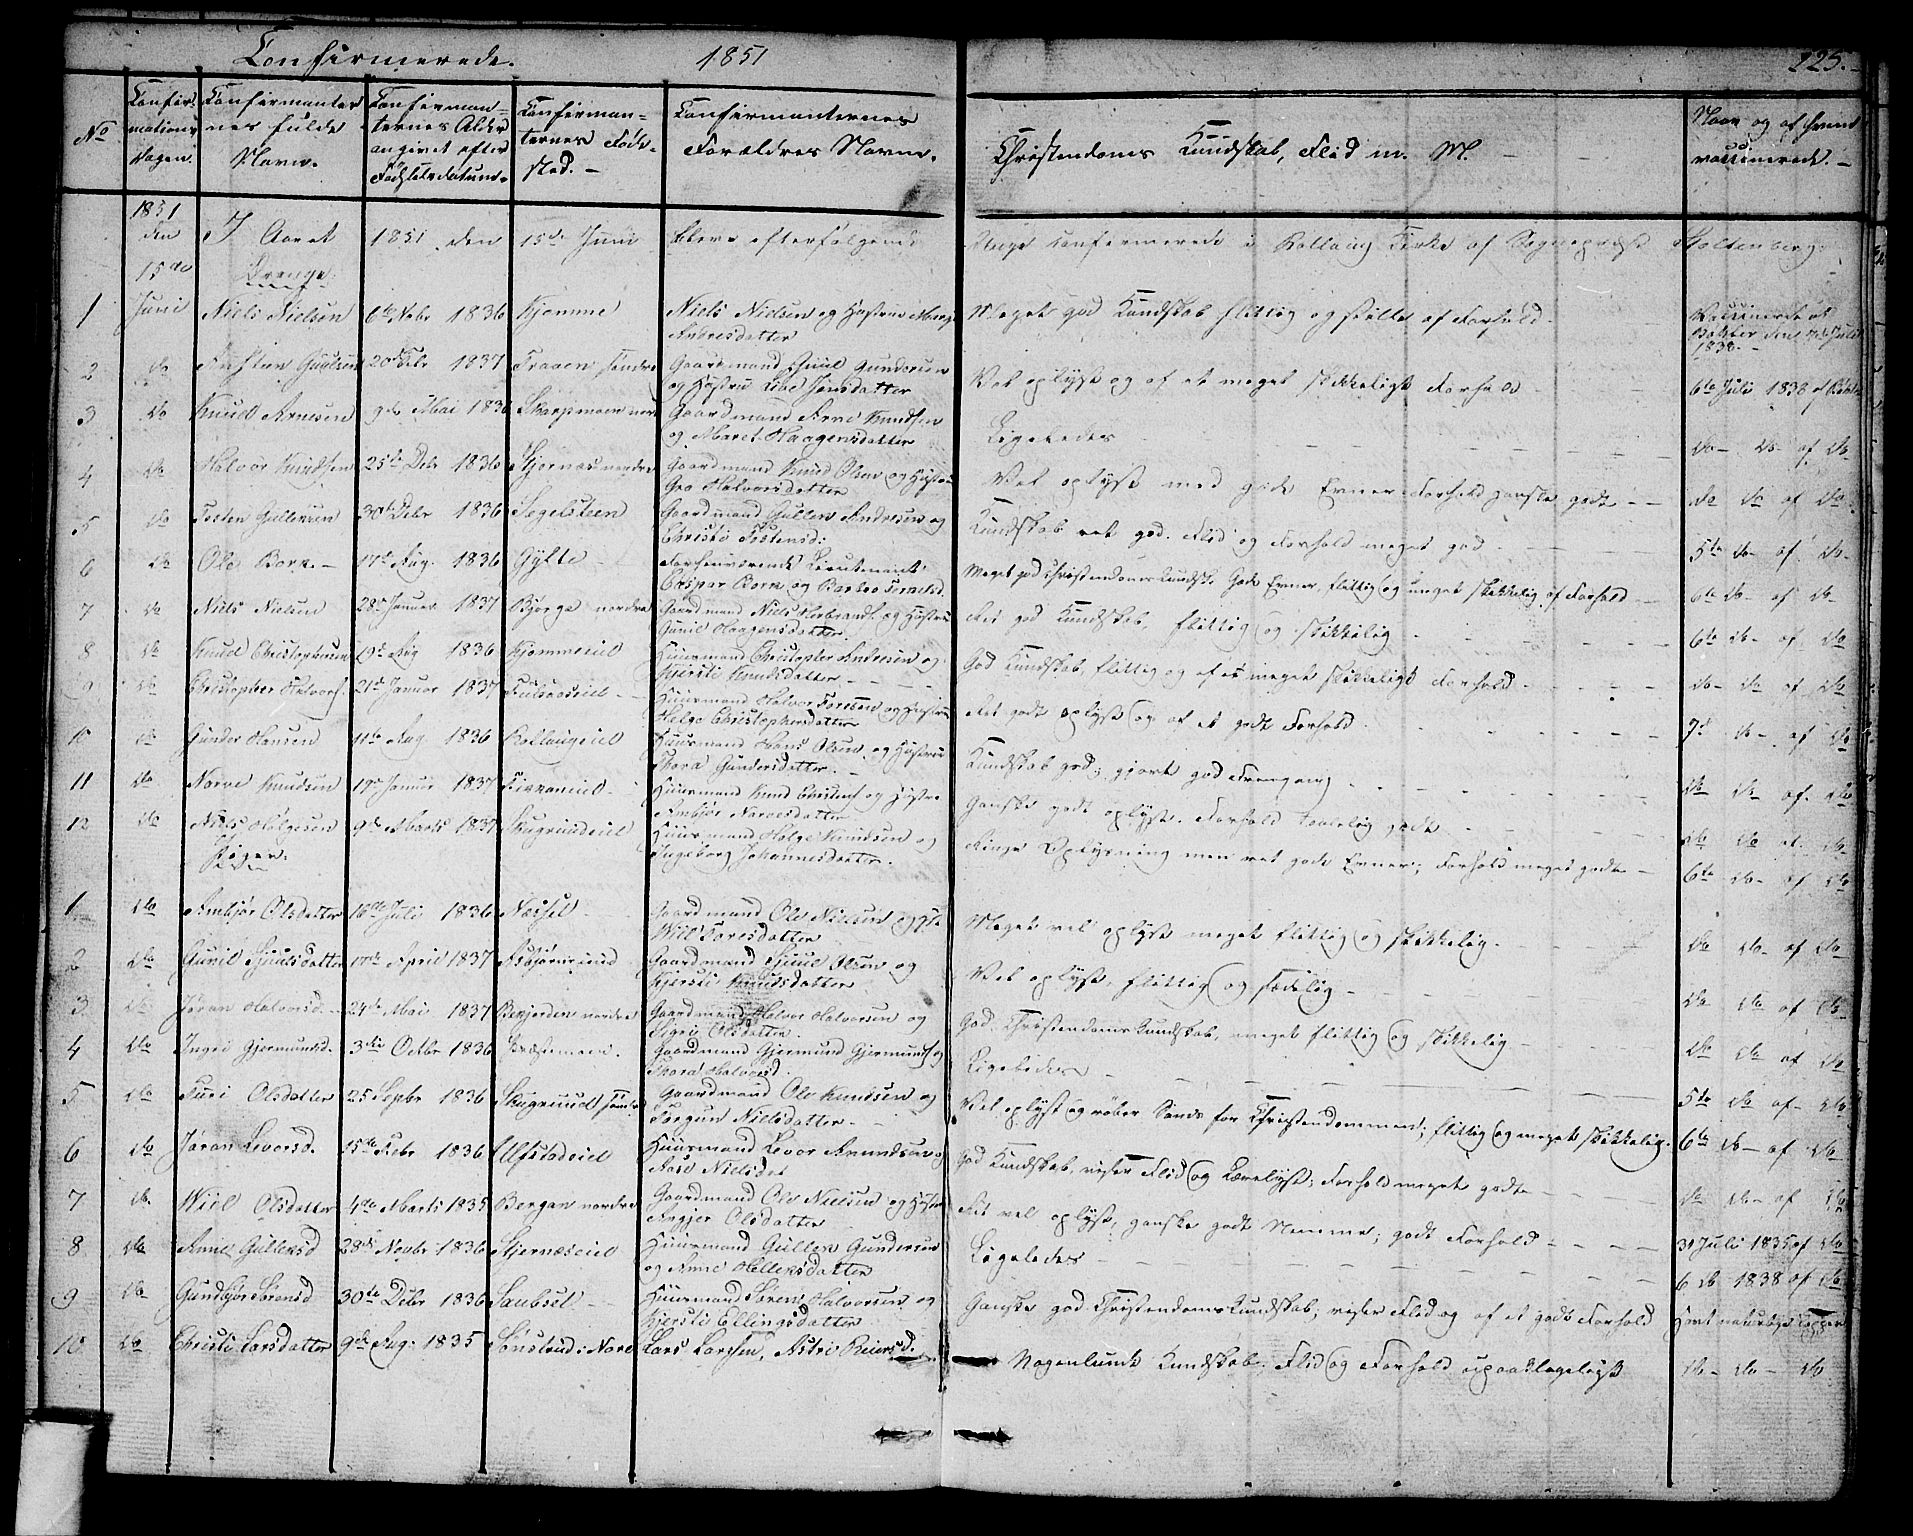 Confirmerede. 1851 225.
No
Confirmations Dagen.
Confirmanternes fulde Navne.
Confirmanternes Alder angivet efter Fødselsdatum.
Confirmanternes Fødested.
Confirmanternes Forældres Navne.
Christendoms Kundskab, Flid m. M.
Naar og af hvem vaccinerede.
1851 den 15de Juni
I Aaret 1851 den 15de Juni bleve efterfølgende Unge confirmerede i Rollaug Kirke af Sognepræst Stoltenberg:
Drenge
1 Niels Nielsen 6te Nobr 1836 Kjomme Niels Nielsen og Hustrue Andresdatter Meget god Kundskab flittig og stille af Forhold. Vaccinerede af Juli 1838.
2 do 20de Febr 1837 Traaen søndre Gaardmand Juul Gundersen og Hustru Libe Jonsdatter Vel oplyst og af et meget skikkeligt Forhold 6te Juli 1838 af
3 do Knud Arnesen 9de Mai 1836 Gaardmand Arne Knudsen og Maret Haagensdatter Ligeledes do do af do
4 do Halvor Knudsen 25de Debr 1836 Stjernes nordre Gaardmand Knud Olsen og Hustru Gro Halvorsdatter Vel oplyst med gode Evner Forhold ganske godt do do af do
5 do Tosten Gulleksen 30te Debr 1836 Segelsteen Gaardmand Gullek Andresen og Christi Tostensd: Kundskab ret god. Flid og Forhold meget god 5te do af do
6 do Ole Bork 17de Aug. 1836 Gylte Forhenværende Lieutenant Caspar Bork og Barbro Meget god Christendoms Kundsk: Gode Evner, flittig og meget skikkelig af Forhold 6te do af do
7 do Niels Nielsen 28de Januar 1837 Bjørge nordre Gaardmand Niels Herbrands. og Hustru Gunil Haagensdatter. Ret god Kundskab, flittig og skikkelig 6te do af do
8 do Knud Christophersen 19de Aug 1836 Kjommeeid Huusmand Christopher Andersen og Kjersti Knudsdatter God Kundskab, flittig og af et meget skikkeligt Forhold do do af do
9 do Christopher Halvors. 21de Januar 1837 Huusmand Halvor Toresen og Hustru Helge Christophersdatter Ret godt oplyst og af et godt Forhold 7de do af do
10 do Gunder Hansen 11te Aug 1836 Rollaugeid Huusmand Hans Olsen og Hustrue Thora Gundersdatter. Kundskab god; gjort god Fremgang do do af do
11 do Narve Knudsen 19de Januar 1837 Huusmand Knud Christens. og Hustru Ambjør Narvesdatter Ganske godt oplyst. Forhold taalelig godt do do af do
12 do Niels Helgesen 9de Marts 1837 Skugrudeid Huusmand Helge Knudsen og Ingeborg Johannesdatter. Ringe Oplysning men ret gode Evner; Forhold meget godt 6te do af do
Piger:
1 do Ambjør Olsdatter 16de Juli 1836 Næssel Gaardmand Ole Nielsen og Wiel Toresdatter Meget vel oplyst meget flittig og skikkelig. do do af do
2 do Guril Juulsdatter 17de April 1837 Gaardmand Juul Olsen og Kjersti Knudsdatter Vel oplyst, flittig og sædelig do do af do
3 do Jøran Halvorsd. 24de Mai 1837 Gaardmand Halvor Halvorsen og Sigri Olsdatter. God Christendoms Kundskab, meget flittig og skikkelig do do af do
4 do Ingri Gjermundsd. 3die Octbr 1836 Gaardmand Gjermund Gjermunds. og Thora Halvorsd. Ligeledes 5te do af do
5 do Turi Olsdatter 25 Sepbr 1836 Skugrud søndre Gaardmand Ole Knudsen og Torgun Nielsdatter Vel oplyst og røber Sands for Christendommen; flittig og meget skikkelig. 6te do af do
6 do Jøran Levorsd. 15de Febr 1836 Ulfstadeid Huusmand Levor Amundsen og Aase Nielsdat God Kundskab, viser Flid og Lærelyst; Forhold meget godt do do af do
7 do Wiel Olsdatter 4de Marts 1835 Bergan nordre Gaardmand Ole Nielsen og Hustru Angjer Olsdatter Ret vel oplyst, ganske godt Nemme; godt Forhold 30 Juli 1835 af do
8 do Anne Gulleksd 28de Novbr 1836 Stjernæseid Huusmand Gullek Gundersen og Anne Helleksdatter Ligeledes 6 do 1838 af do
9 do Gundbjør Sørensd 30te Debr 1836 Saubsel Huusmand Søren Halvorsen og Kjersti Ellingsdatter Ganske god Christendoms Kundskab; viser Flid og af et godt Forhold Havt naturlige Kopper
10 do Christi Larsdatter 9de Aug: 1835 Sønsterud i Nore Lars Larssen, Astri Reiersd. Nogenlunde Kundskab; Flid og Forhold upaaklageligt do do do